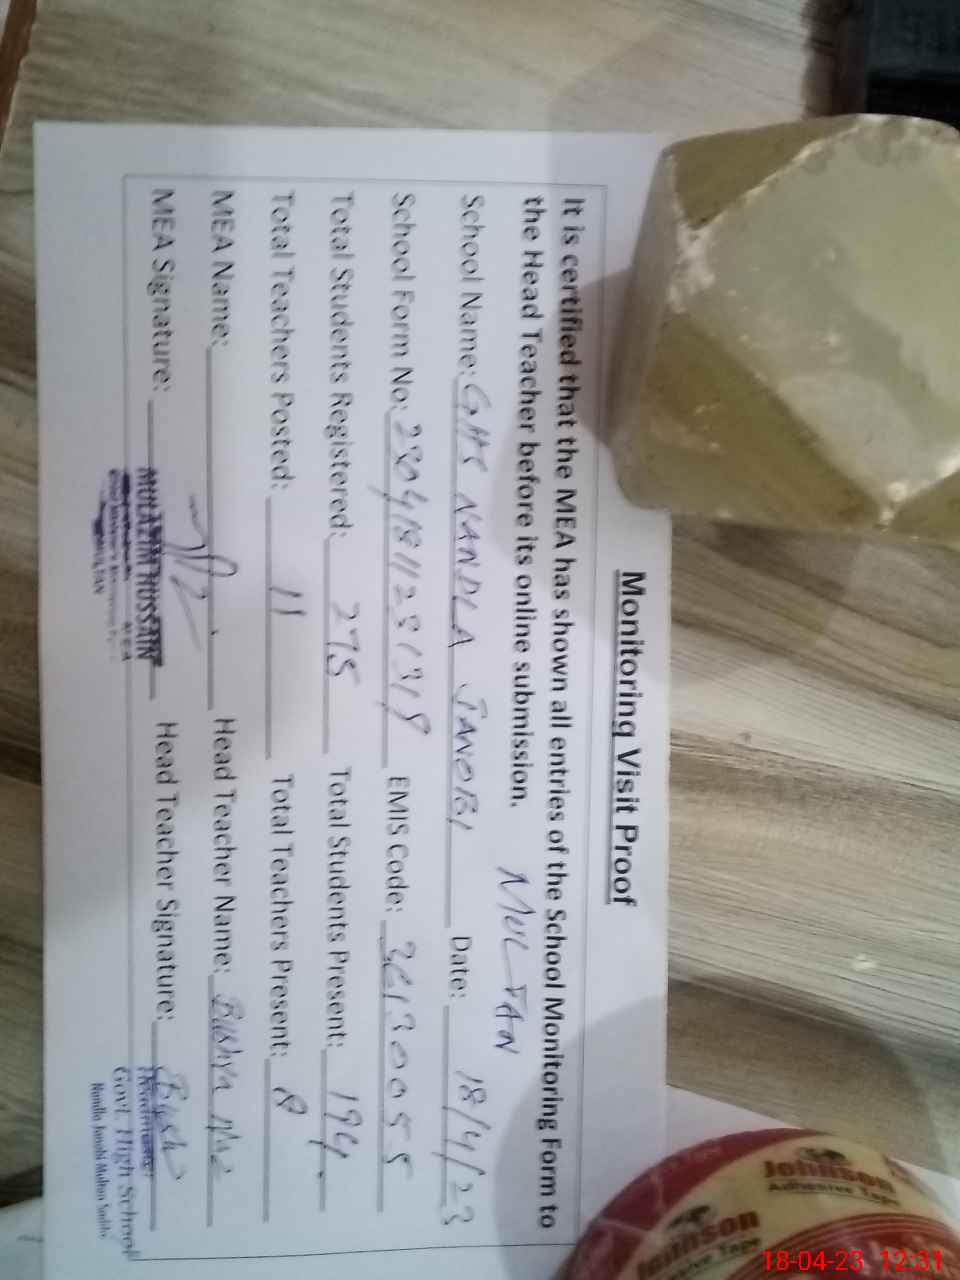 Monitoring Visit Proof
It is certified that the MEA has shown all entries of the School Monitoring Form to
the Head Teacher before its online submission.
MULTAN
School Name: GHS NANDLA JANOBI Date: 18/4/23
School Form No: EMIS Code: 36130055
Total Students Registered: 275 Total Students Present: 194
Total Teachers Posted: 11 Total Teachers Present: 8
MEA Name: Head Teacher Name: Bushra Naz
MEA Signature: Head Teacher Signature: Bush
MULAZIM HUSSAIN
MEA
MULTAN
Headmaster
Govt. High School
Nandla Janobi Multan Saddar
Johnson
Adhesive Tape
Johnson
Adhesive Tape
18-04-23 12:31